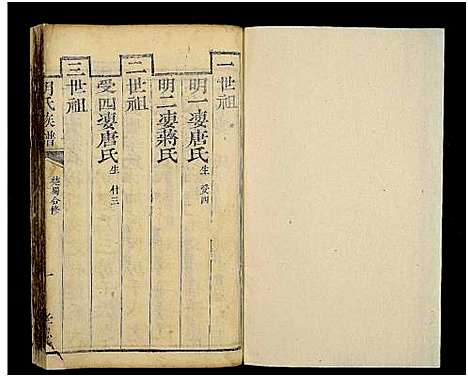 一世祖
明一妻唐氏 生 受四
明二妻蔣氏
二世祖
受四妻唐氏 生 什三
三世祖
胡氏族譜
合修
一